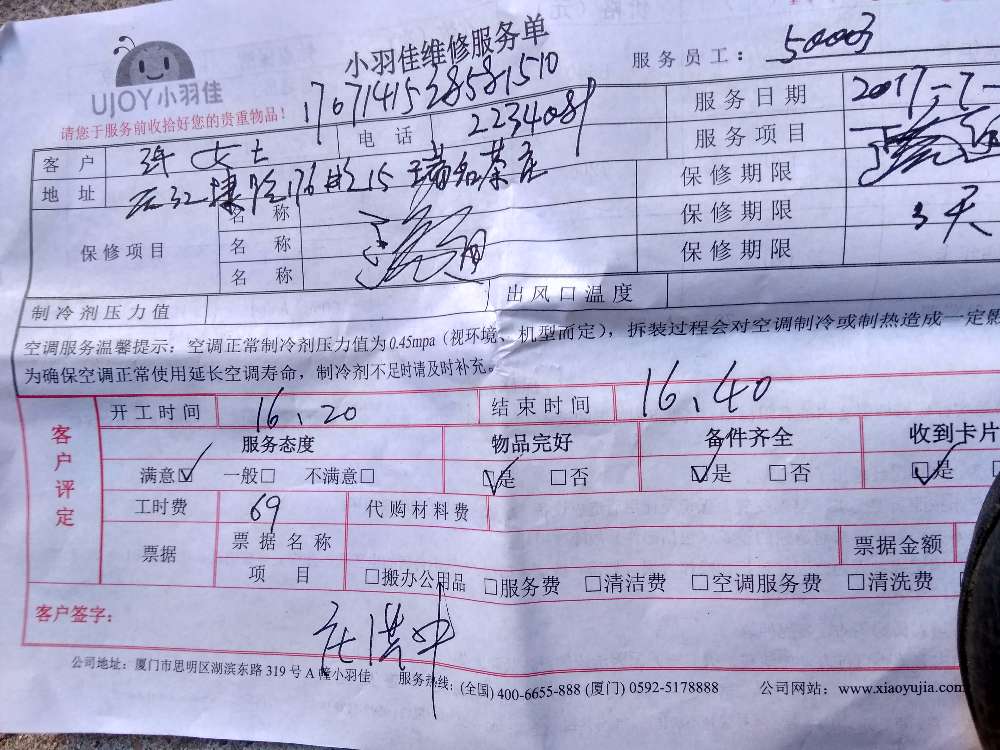 UJOY小羽佳
小羽佳维修服务单
服务员工： 50003
请您于服务前收拾好您的贵重物品！
1707141528581510
客 户 女士 电 话 2234081 服务日期 2017-7-
地 址 176 215 茶庄 服务项目
保修项目 名 称 保修期限
名 称 保修期限 3天
名 称 保修期限
制冷剂压力值 出风口温度
空调服务温馨提示：空调正常制冷剂压力值为0.45mpa（视环境、机型而定），拆装过程会对空调制冷或制热造成一定影
为确保空调正常使用延长空调寿命，制冷剂不足时请及时补充。
客户评定
开工时间 16、20 结束时间 16、40
服务态度 物品完好 备件齐全 收到卡片
满意☑ 一般□ 不满意□ ☑是 □否 ☑是 □否 ☑是
工时费 69 代购材料费
票据 票据名称 票据金额
项 目 □搬办公用品 □服务费 □清洁费 □空调服务费 □清洗费
客户签字： 庄洪中
公司地址：厦门市思明区湖滨东路 319 号 A 幢小羽佳 服务热线：(全国) 400-6655-888 (厦门) 0592-5178888 公司网站：www.xiaoyujia.com